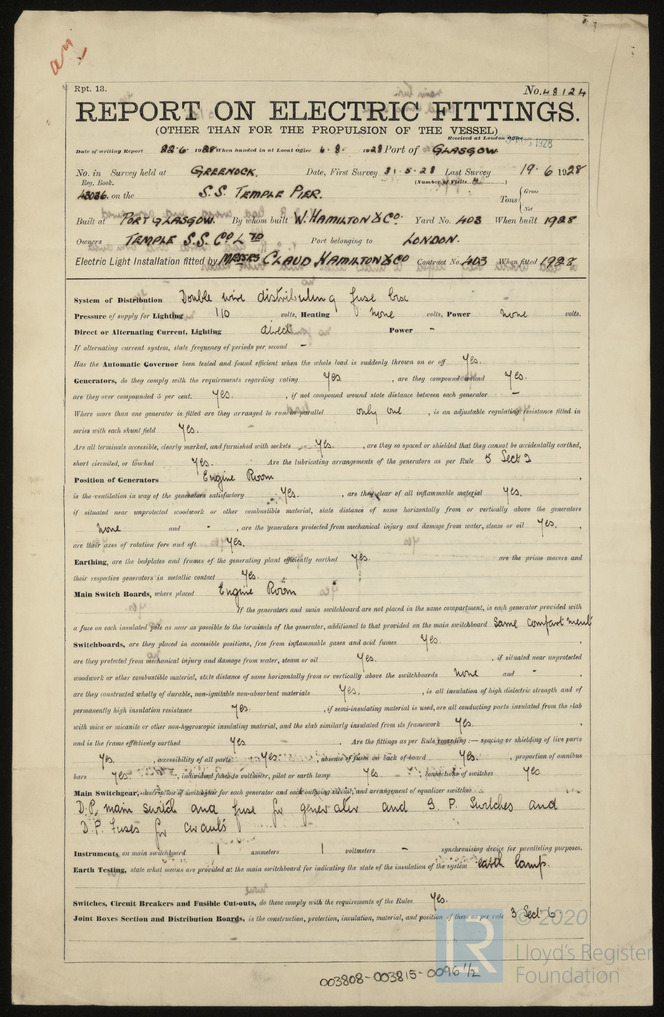 Rpt. 13.
No. 48124
REPORT ON ELECTRIC FITTINGS.
(OTHER THAN FOR THE PROPULSION OF THE VESSEL)
Received at London Office
Date of writing Report 22.6.1928 When handed in at Local Office 6.8.1928 Port of Glasgow
No. in Survey held at Greenock. Date, First Survey 31.5.28 Last Survey 19.6.1928
Reg. Book. (Number of Visits 4)
43036 on the S.S. Temple Pier. Tons { Gross Net
Built at Port Glasgow. By whom built W. Hamilton & Co. Yard No. 403 When built 1928
Owners Temple S.S. Co Ltd Port belonging to London.
Electric Light Installation fitted by Messrs Claud Hamilton & Co Contract No. 403 When fitted 1928
System of Distribution Double wire distributing fuse box
Pressure of supply for Lighting 110 volts, Heating none volts, Power none volts.
Direct or Alternating Current, Lighting direct Power -
If alternating current system, state frequency of periods per second -
Has the Automatic Governor been tested and found efficient when the whole load is suddenly thrown on or off Yes.
Generators, do they comply with the requirements regarding rating Yes, are they compound wound Yes.
are they over compounded 5 per cent. Yes., if not compound wound state distance between each generator -
Where more than one generator is fitted are they arranged to run in parallel only one, is an adjustable regulating resistance fitted in
series with each shunt field Yes.
Are all terminals accessible, clearly marked, and furnished with sockets Yes., are they so spaced or shielded that they cannot be accidentally earthed,
short circuited, or touched Yes. Are the lubricating arrangements of the generators as per Rule 5 Sect 2
Position of Generators Engine Room
is the ventilation in way of the generators satisfactory Yes., are they clear of all inflammable material Yes.
if situated near unprotected woodwork or other combustible material, state distance of same horizontally from or vertically above the generators
none and -, are the generators protected from mechanical injury and damage from water, steam or oil Yes.,
are their axes of rotation fore and aft Yes.
Earthing, are the bedplates and frames of the generating plant efficiently earthed Yes. are the prime movers and
their respective generators in metallic contact Yes.
Main Switch Boards, where placed Engine Room
If the generators and main switchboard are not placed in the same compartment, is each generator provided with
a fuse on each insulated pole as near as possible to the terminals of the generator, additional to that provided on the main switchboard same compartment
Switchboards, are they placed in accessible positions, free from inflammable gases and acid fumes Yes.,
are they protected from mechanical injury and damage from water, steam or oil Yes., if situated near unprotected
woodwork or other combustible material, state distance of same horizontally from or vertically above the switchboards none and -,
are they constructed wholly of durable, non-ignitable non-absorbent materials Yes., is all insulation of high dielectric strength and of
permanently high insulation resistance Yes., if semi-insulating material is used, are all conducting parts insulated from the slab
with mica or micanite or other non-hygroscopic insulating material, and the slab similarly insulated from its framework Yes.,
and is the frame effectively earthed Yes. Are the fittings as per Rule regarding:— spacing or shielding of live parts
Yes., accessibility of all parts Yes., absence of fuses on back of board Yes., proportion of omnibus
bars Yes., individual fuses to voltmeter, pilot or earth lamp Yes, connections of switches Yes.
Main Switchgear, description of switchgear for each generator and each outgoing circuit, and arrangement of equalizer switches
D.P. main switch and fuse for generator and S.P. Switches and
D.P. Fuses for circuits
Instruments, on main switchboard 1 ammeters 1 voltmeters - synchronising device for paralleling purposes.
Earth Testing, state what means are provided at the main switchboard for indicating the state of the insulation of the system earth lamp.
Switches, Circuit Breakers and Fusible Cut-outs, do these comply with the requirements of the Rules Yes.
Joint Boxes Section and Distribution Boards, is the construction, protection, insulation, material, and position of these as per rule 3 Sect 6
© 2020
Lloyd's Register
Foundation
003808-003815-0096 1/2